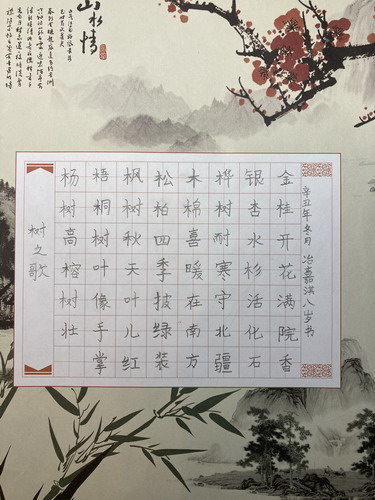 山水情
树之歌
杨树高榕树壮
梧桐树叶像手掌
枫树秋天叶儿红
松柏四季披绿装
木棉喜暖在南方
桦树耐寒守北疆
银杏水杉活化石
金桂开花满院香
辛丑年冬月 冶嘉淇八岁书